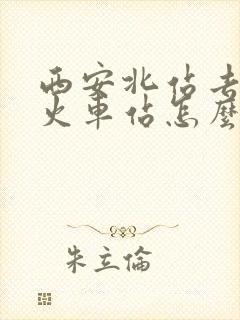 西安北佔去
火車佔怎麼
朱立倫